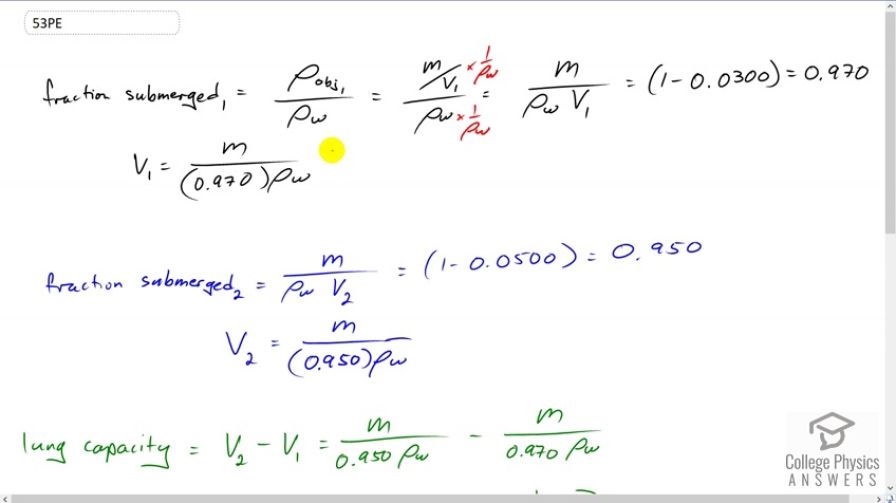 53PE
fraction submerged₁ = ρobj₁ / ρw = (m/V₁ × 1/ρw) / (ρw × 1/ρw) = m / (ρw V₁) = (1 - 0.0300) = 0.970
V₁ = m / ((0.970) ρw)
fraction submerged₂ = m / (ρw V₂) = (1 - 0.0500) = 0.950
V₂ = m / ((0.950) ρw)
lung capacity = V₂ - V₁ = m / (0.950 ρw) - m / (0.970 ρw)
College Physics
ANSWERS